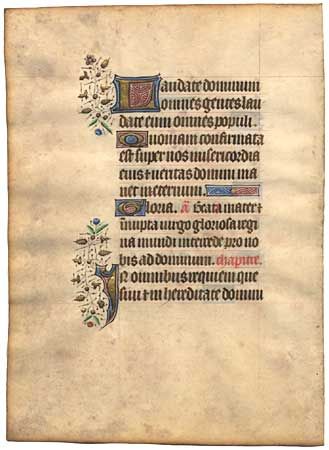 Laudate dominum
omnes gentes lau
date eum omnes populi.
Quoniam confirmata
est super nos misericordia
eius et veritas domini ma
net in eternum.
Gloria. añ Beata mater et
innupta virgo gloriosa regi
na mundi intercede pro no
bis ad dominum. chapitre.
In omnibus requiem que
sivi et in hereditate domini